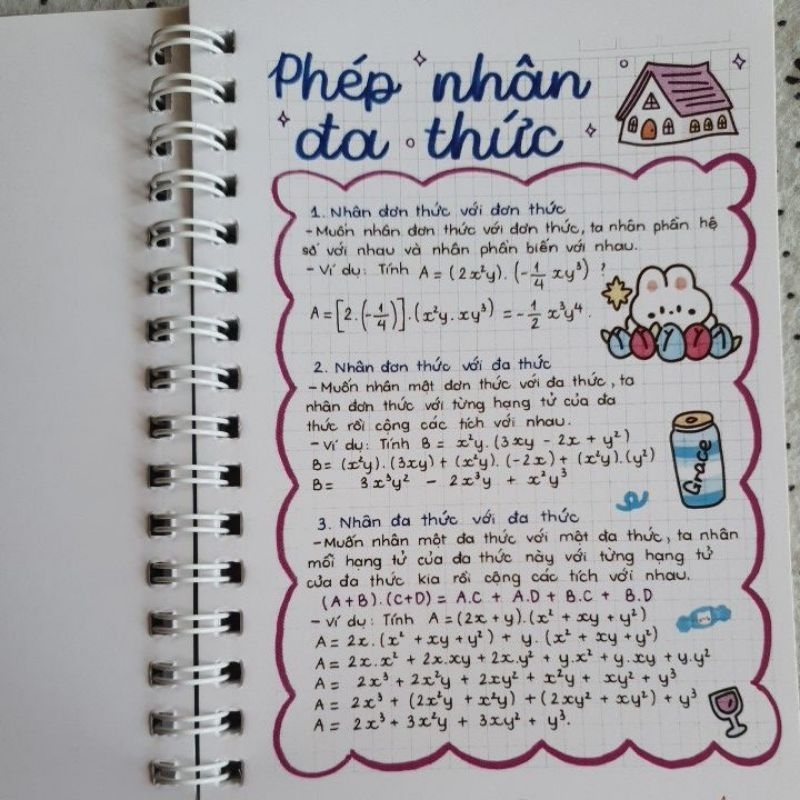 Phép nhân
đa thức
1. Nhân đơn thức với đơn thức
- Muốn nhân đơn thức với đơn thức, ta nhân phần hệ
số với nhau và nhân phần biến với nhau.
- Ví dụ: Tính A = (2x²y).(-1/4 xy³) ?
A = [2.(-1/4)].(x²y.xy³) = -1/2 x³y⁴.
2. Nhân đơn thức với đa thức
- Muốn nhân một đơn thức với đa thức, ta
nhân đơn thức với từng hạng tử của đa
thức rồi cộng các tích với nhau.
- Ví dụ: Tính B = x²y.(3xy - 2x + y²)
B = (x²y).(3xy) + (x²y).(-2x) + (x²y).(y²)
B = 3x³y² - 2x³y + x²y³
Grace
3. Nhân đa thức với đa thức
- Muốn nhân một đa thức với một đa thức, ta nhân
mỗi hạng tử của đa thức này với từng hạng tử
của đa thức kia rồi cộng các tích với nhau.
(A+B).(C+D) = A.C + A.D + B.C + B.D
- Ví dụ: Tính A = (2x + y).(x² + xy + y²)
A = 2x.(x² + xy + y²) + y.(x² + xy + y²)
A = 2x.x² + 2x.xy + 2x.y² + y.x² + y.xy + y.y²
A = 2x³ + 2x²y + 2xy² + x²y + xy² + y³
A = 2x³ + (2x²y + x²y) + (2xy² + xy²) + y³
A = 2x³ + 3x²y + 3xy² + y³.